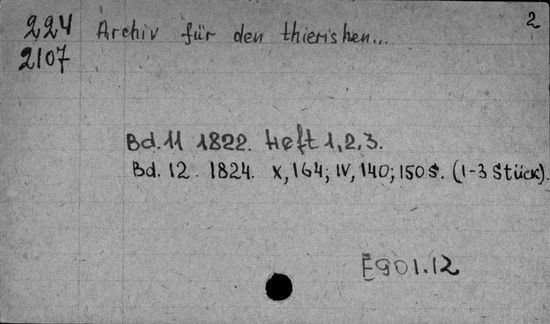 224 Archiv für den thierishen... 2
2107
Bd. 11 1822. Heft 1, 2, 3.
Bd. 12. 1824. X, 164; IV, 140; 150 S. (1-3 Stück).
E901.12